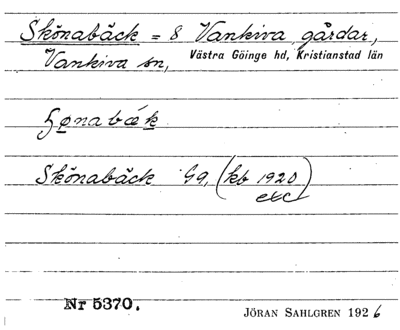 Skönabäck = 8 Vankiva gårdar,
Vankiva sn, Västra Göinge hd, Kristianstad län
ꜧønabæk
Skönabäck Gg, (kb 1920)
etc
Nr 5370.
JÖRAN SAHLGREN 1926